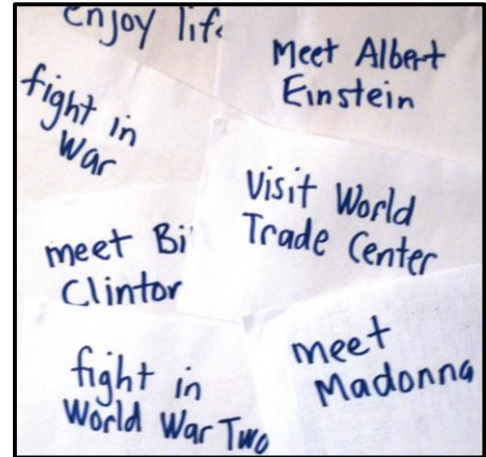 enjoy life
Meet Albert
Einstein
fight in
war
Visit World
Trade Center
meet Bi
Clinton
fight in
World War Two
meet
Madonna